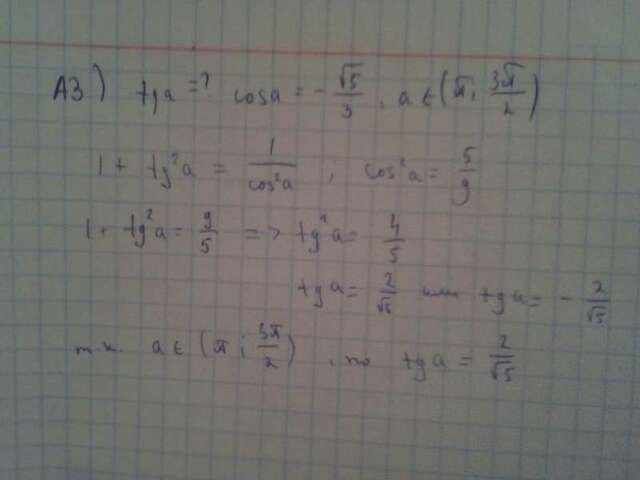 А3) tga = ? cosa = -√5/3, a ∈ (π; 3π/2)
1 + tg²a = 1/cos²a ; cos²a = 5/9
1 + tg²a = 9/5 => tg²a = 4/5
tga = 2/√5 или tga = - 2/√5
т.к. a ∈ (π; 3π/2), то tga = 2/√5